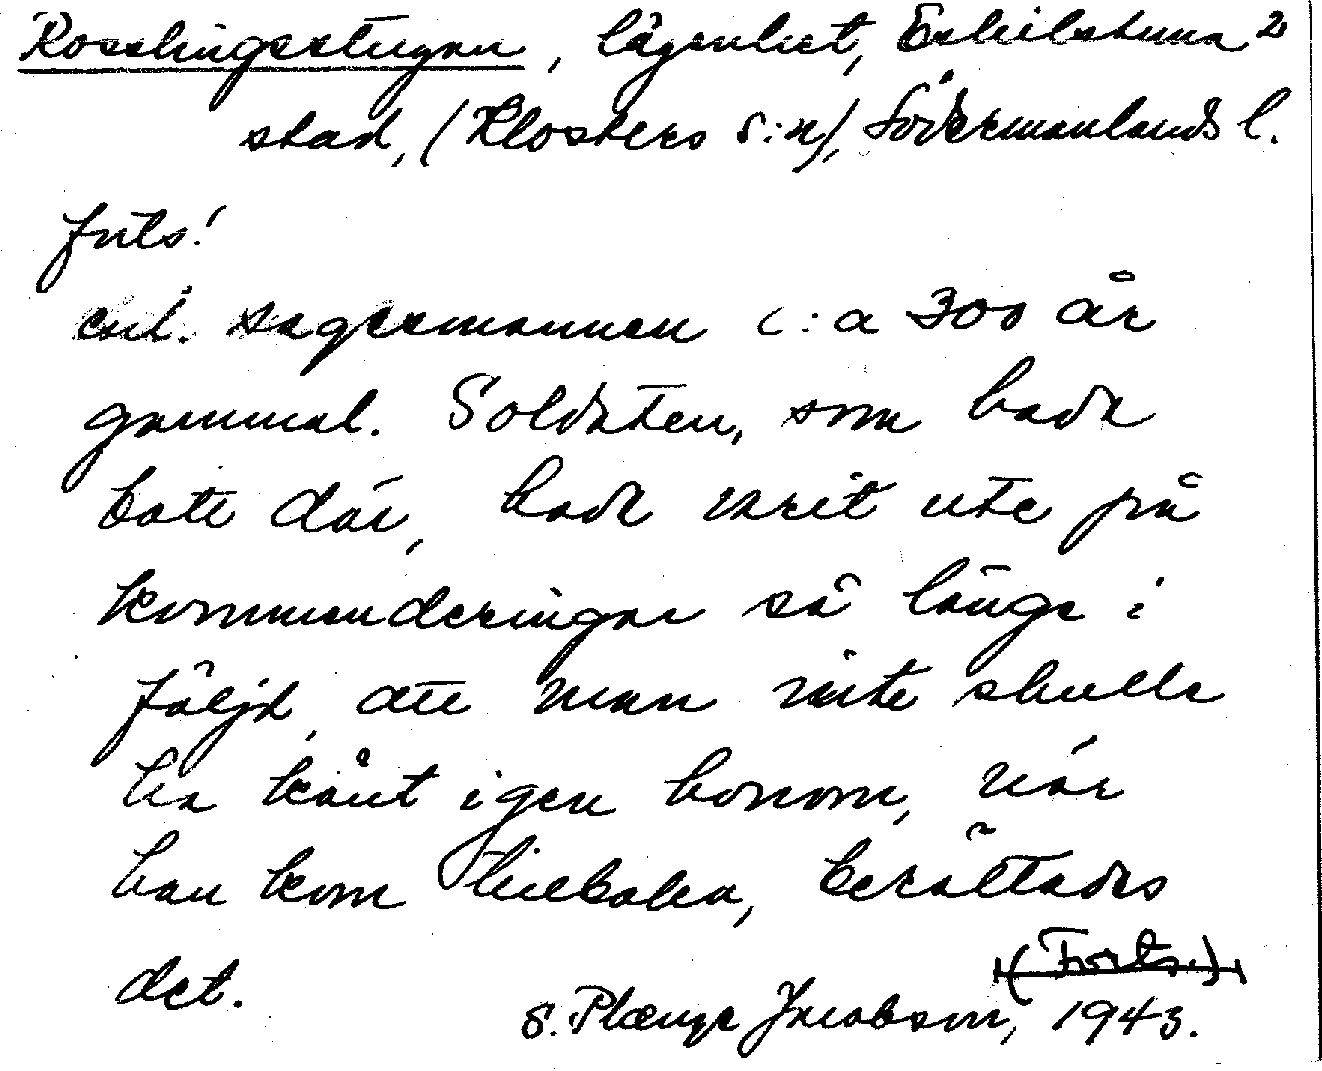 Rosslingsstugan, lägenhet, Eskilstuna 2
stad, (Klosters s:n), Södermanlands l.
forts.
enl. sagesmannen c:a 300 år
gammal. Soldaten, som hade
bott där, hade varit ute på
kommenderingar så länge i
följd, att man inte skulle
ha känt igen honom, när
han kom tillbaka, berättades
det.
(Forts.)
S. Plænge Jacobson, 1943.